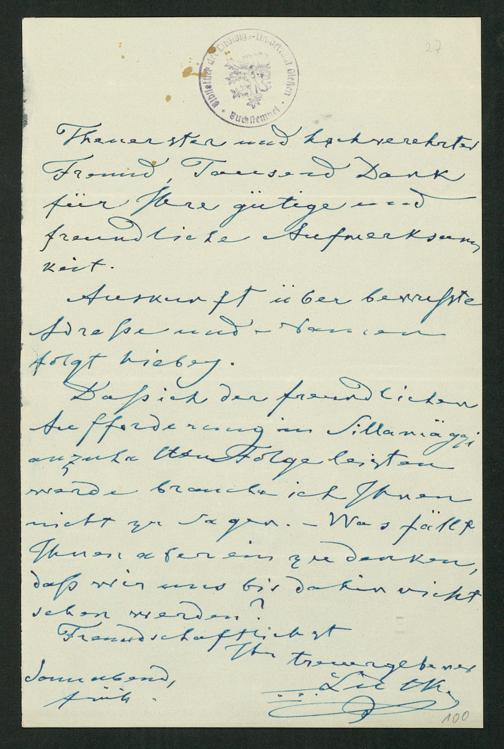 27
Bibliothek der Ludwigs-Universität Gießen
Buchstempel
Theuerster und hochverehrter
Freund, Tausend Dank
für Ihre gütige und
freundliche Aufmerksam
keit.
Auskunft über bewußte
Adreße und Namen
folgt hiebey.
Daß ich der freundlichen
Aufforderung in Sillamäggi
Folge leisten
werde brauche ich Ihnen
nicht zu sagen. – Was fällt
Ihnen aber ein zu denken,
daß wir uns bis dahin nicht
sehen werden?
Freundschaftlichst
Ihr treuergebener
Sonnabend,
früh.
100